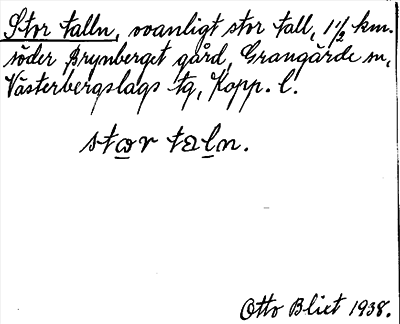 Stor talln, ovanligt stor tall, 1 1/2 km.
söder Brynberget gård, Grangärde sn,
Västerbergslags tg, Kopp. l.
stωr taln.
Otto Blixt 1938.